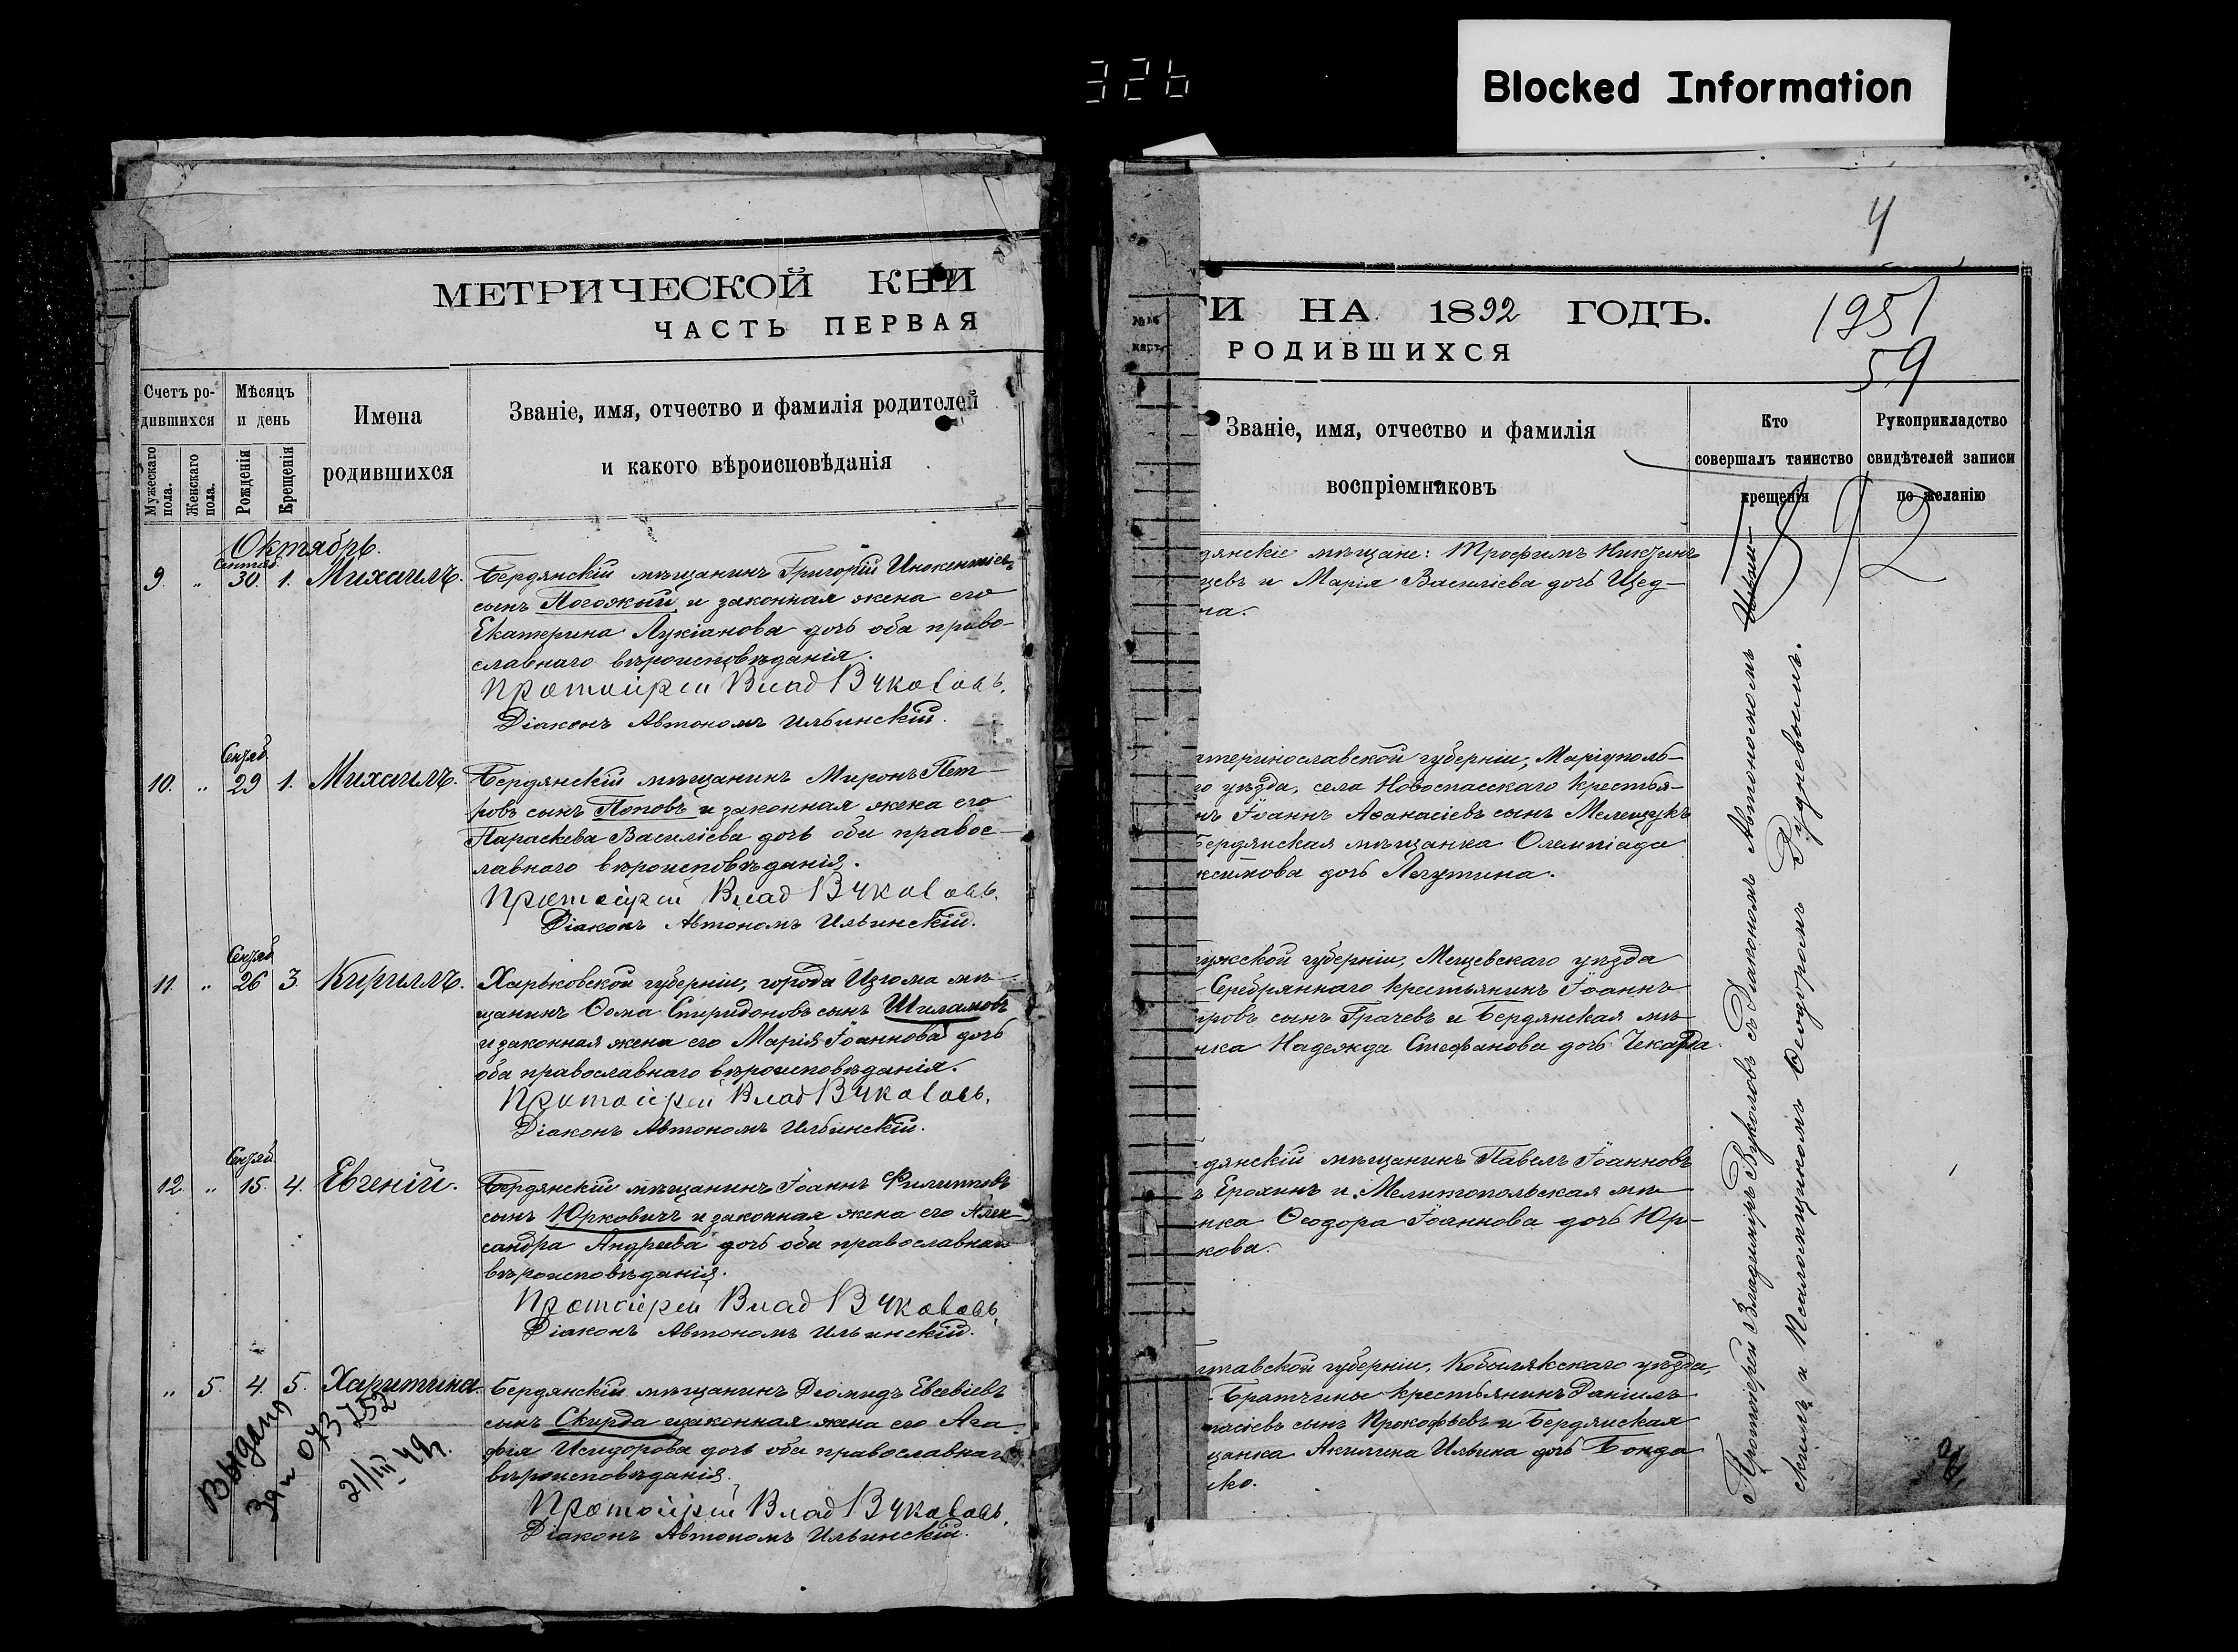 326
Blocked Information
МЕТРИЧЕСКОЙ КНИ
ЧАСТЬ ПЕРВАЯ
Счетъ ро-
дившихся
Мѣсяцъ
и день
Имена
родившихся
Званіе, имя, отчество и фамилія родителей
и какого вѣроисповѣданія
Мужескаго пола.
Женскаго пола.
Рожденія
Крещенія
Октябрь.
9. " 30. 1. Михаилъ. Бердянскій мѣщанинъ Григорій Инокентіевъ
сынъ и законная жена его
Екатерина Лукіанова дочь оба право-
славнаго вѣроисповѣданія.
Протоіерей Влад Вуколовъ.
Діаконъ Автономъ Ильинскій.
Сентяб.
10. " 29 1. Михаилъ. Бердянскій мѣщанинъ Миронъ Пет-
ровъ сынъ Поповъ и законная жена его
Параскева Василіева дочь оба правос-
лавнаго вѣроисповѣданія.
Протоіерей Влад Вуколовъ.
Діаконъ Автономъ Ильинскій.
Сентяб
11. " 26 3. Кириллъ. Харьковской губерніи, города Изюма мѣ-
щанинъ Ѳома Спиридоновъ сынъ
и законная жена его Марія Іоаннова дочь
оба православнаго вѣроисповѣданія.
Протоіерей Влад Вуколовъ.
Діаконъ Автономъ Ильинскій.
Сентяб.
12. " 15. 4. Евгеній. Бердянскій мѣщанинъ Іоаннъ Филипповъ
сынъ Юрковичъ и законная жена его Алек-
сандра Андреева дочь оба православнаго
вѣроисповѣданія.
Протоіерей Влад Вуколовъ.
Діаконъ Автономъ Ильинскій.
" 5. 4. 5. Харитина. Бердянскій мѣщанинъ Діомидъ Евсевіевъ
сынъ Скирда и законная жена его Ага-
фія Исидорова дочь оба православнаго
вѣроисповѣданія.
Протоіерей Влад Вуколовъ.
Діаконъ Автономъ Ильинскій.
Выдано
21/III 49г.
4
ГИ НА 1892 ГОДЪ.
РОДИВШИХСЯ
1951
59
Званіе, имя, отчество и фамилія
воспріемниковъ
Кто
совершалъ таинство
крещенія
Рукоприкладство
свидѣтелей записи
по желанію
дянскіе мѣщане: Трофимъ Никитинъ
цевъ и Марія Василіева дочь Щед-
на.
атеринославской губерніи, Маріуполь-
го уѣзда, села Новоспасскаго крестья-
нъ Іоаннъ Аѳанасіевъ сынъ Мелещукъ
Бердянская мѣщанка Олимпіада
ксимова дочь Лагутина.
лужской губерніи, Мещевскаго уѣзда
Серебряннаго крестьянинъ Іоаннъ
тровъ сынъ Грачевъ и Бердянская мѣ-
нка Надежда Стефанова дочь Чекарда
дянскій мѣщанинъ Павелъ Іоанновъ
ъ Ерохинъ и Мелитопольская мѣ-
нка Ѳеодора Іоаннова дочь Юр-
кова.
лтавской губерніи, Кобылякскаго уѣзда,
Братчины крестьянинъ Даніилъ
насіевъ сынъ Прокофьевъ и Бердянская
щанка Акилина Ильина дочь Бонда
нко.
Протоіерей Владиміръ Вуколовъ съ Діакономъ Автономомъ Ильин-
скимъ и Псаломщикомъ Ѳеодоромъ Рудневымъ.